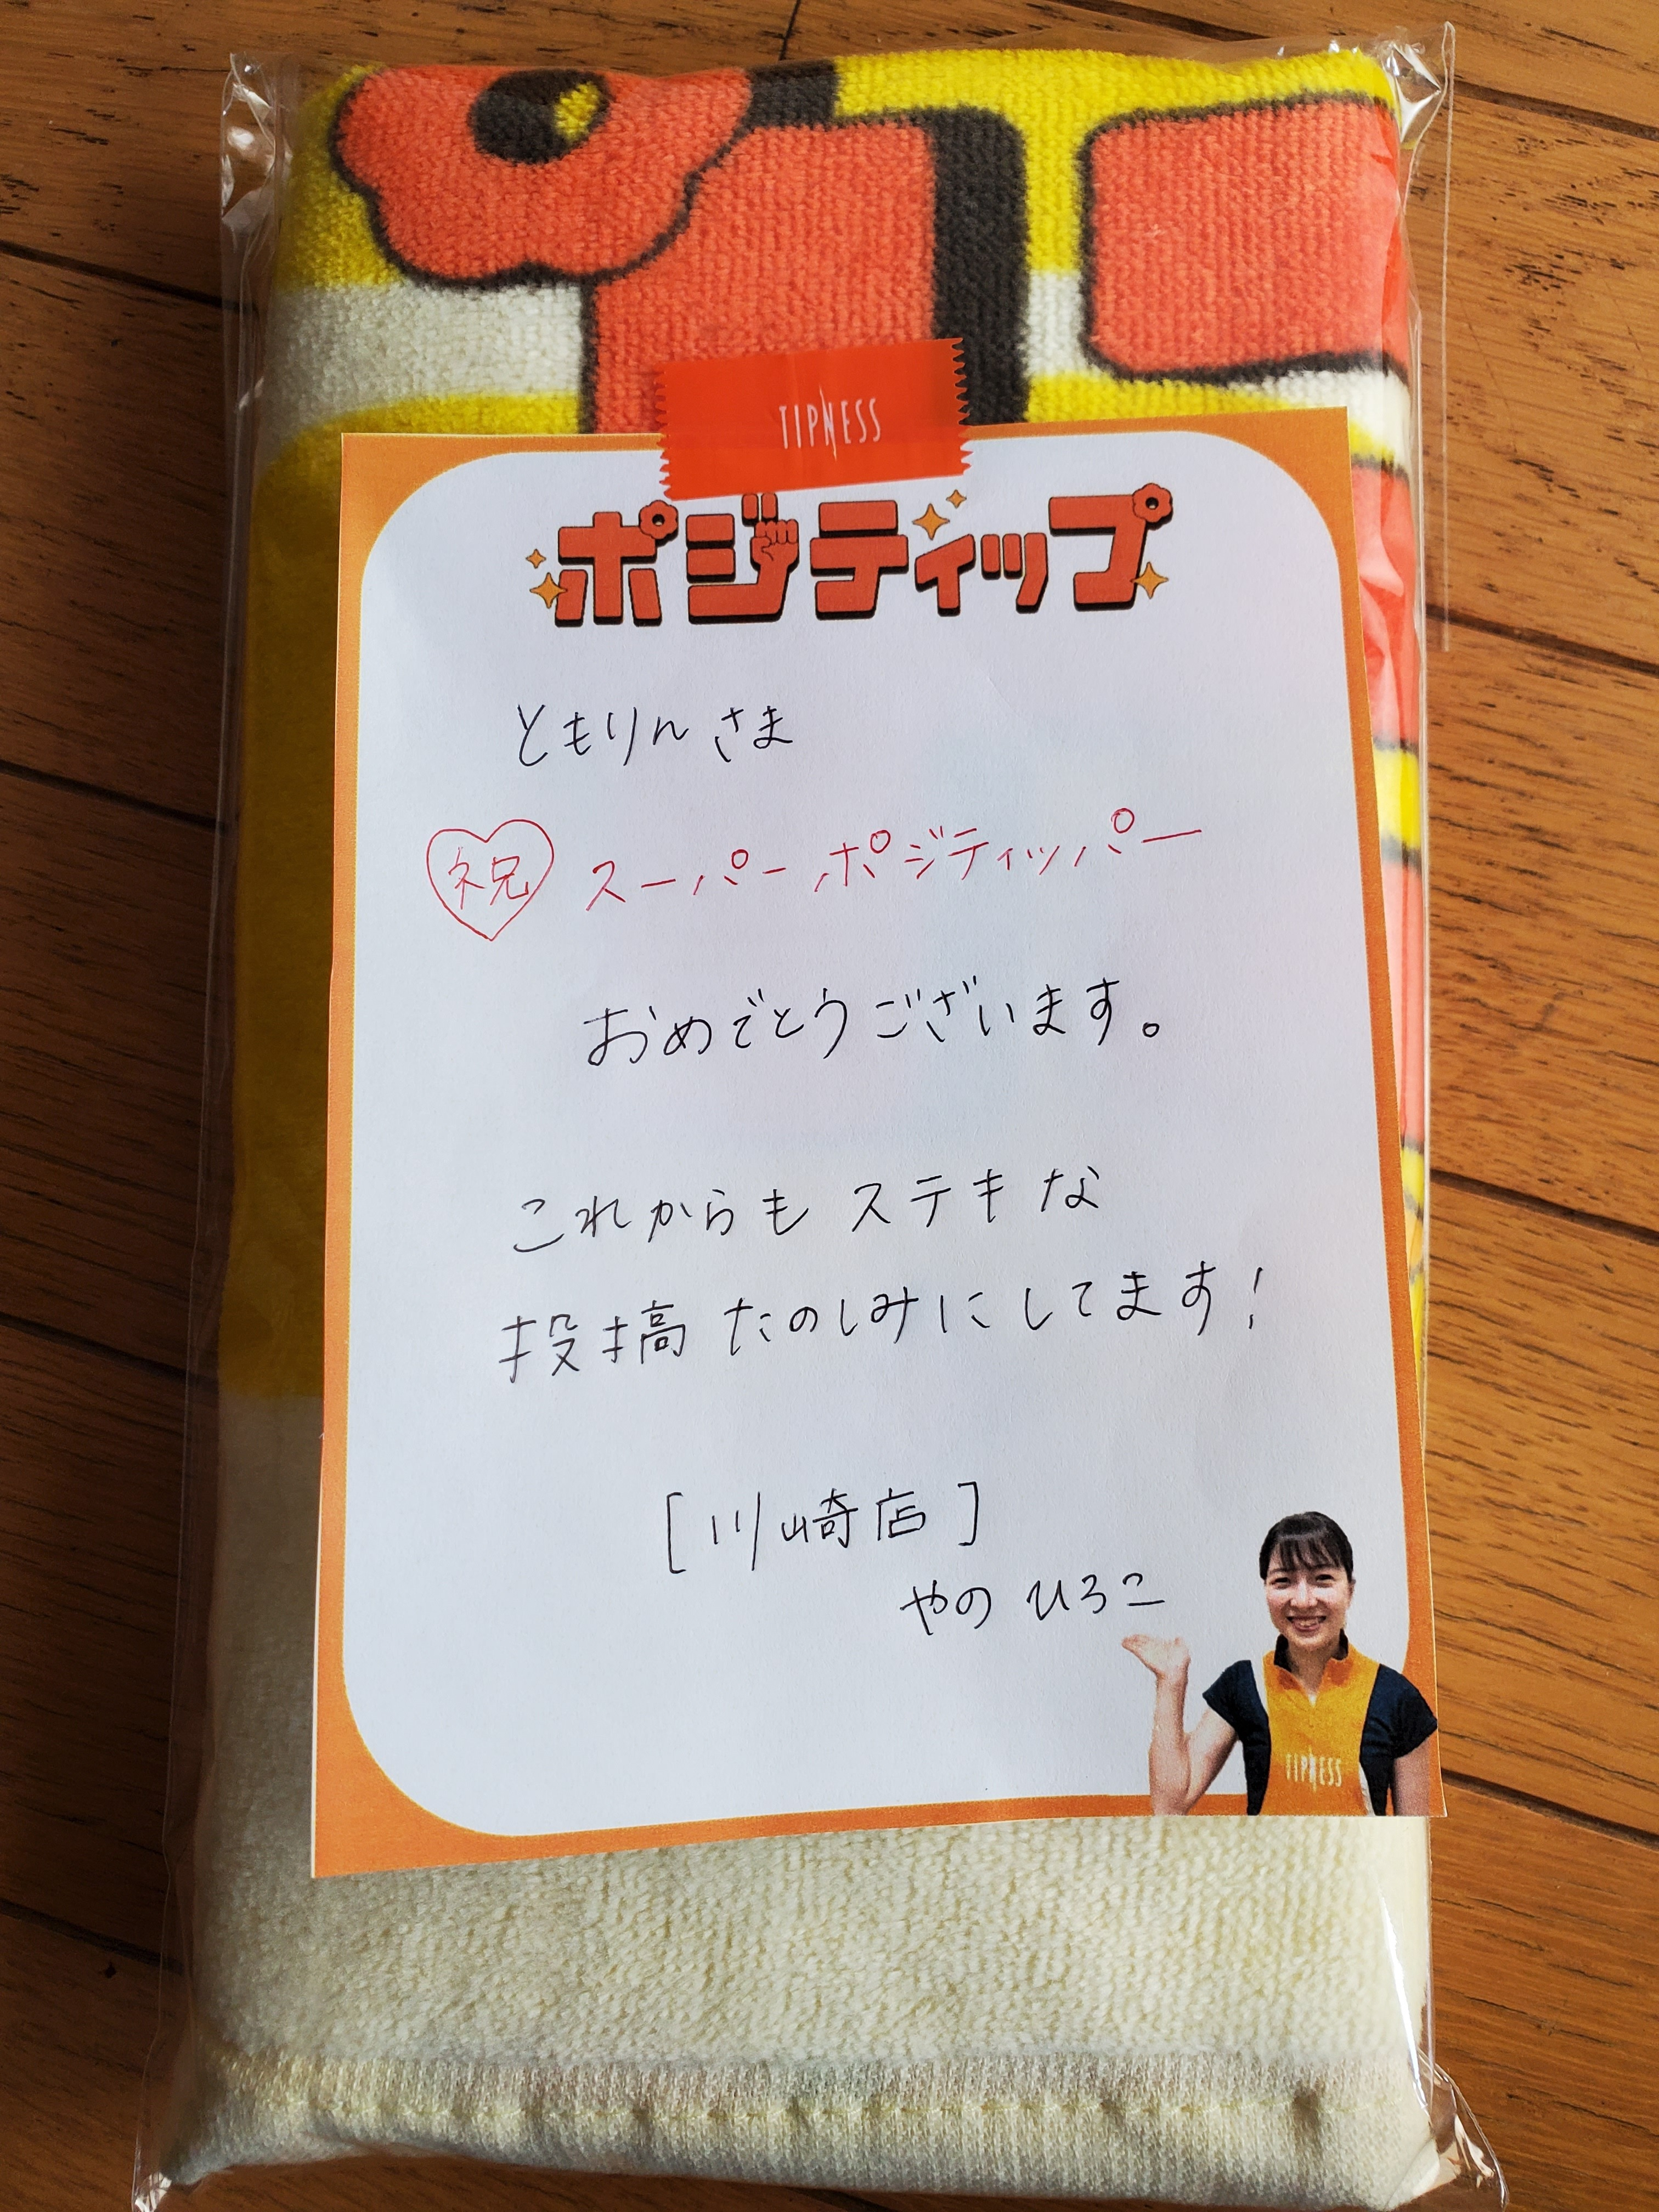 TIPNESS
ポジティップ
ともりんさま
祝 スーパーポジティッパー
おめでとうございます。
これからもステキな
投稿たのしみにしてます!
[川崎店]
やの ひろこ
TIPNESS